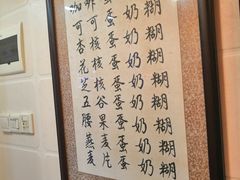 咖啡蛋奶糊
可可蛋奶糊
杏核蛋奶糊
花蛋奶糊
芝蛋奶糊
五谷蛋奶糊
腰果蛋奶糊
燕麦蛋奶糊
麦片蛋奶糊